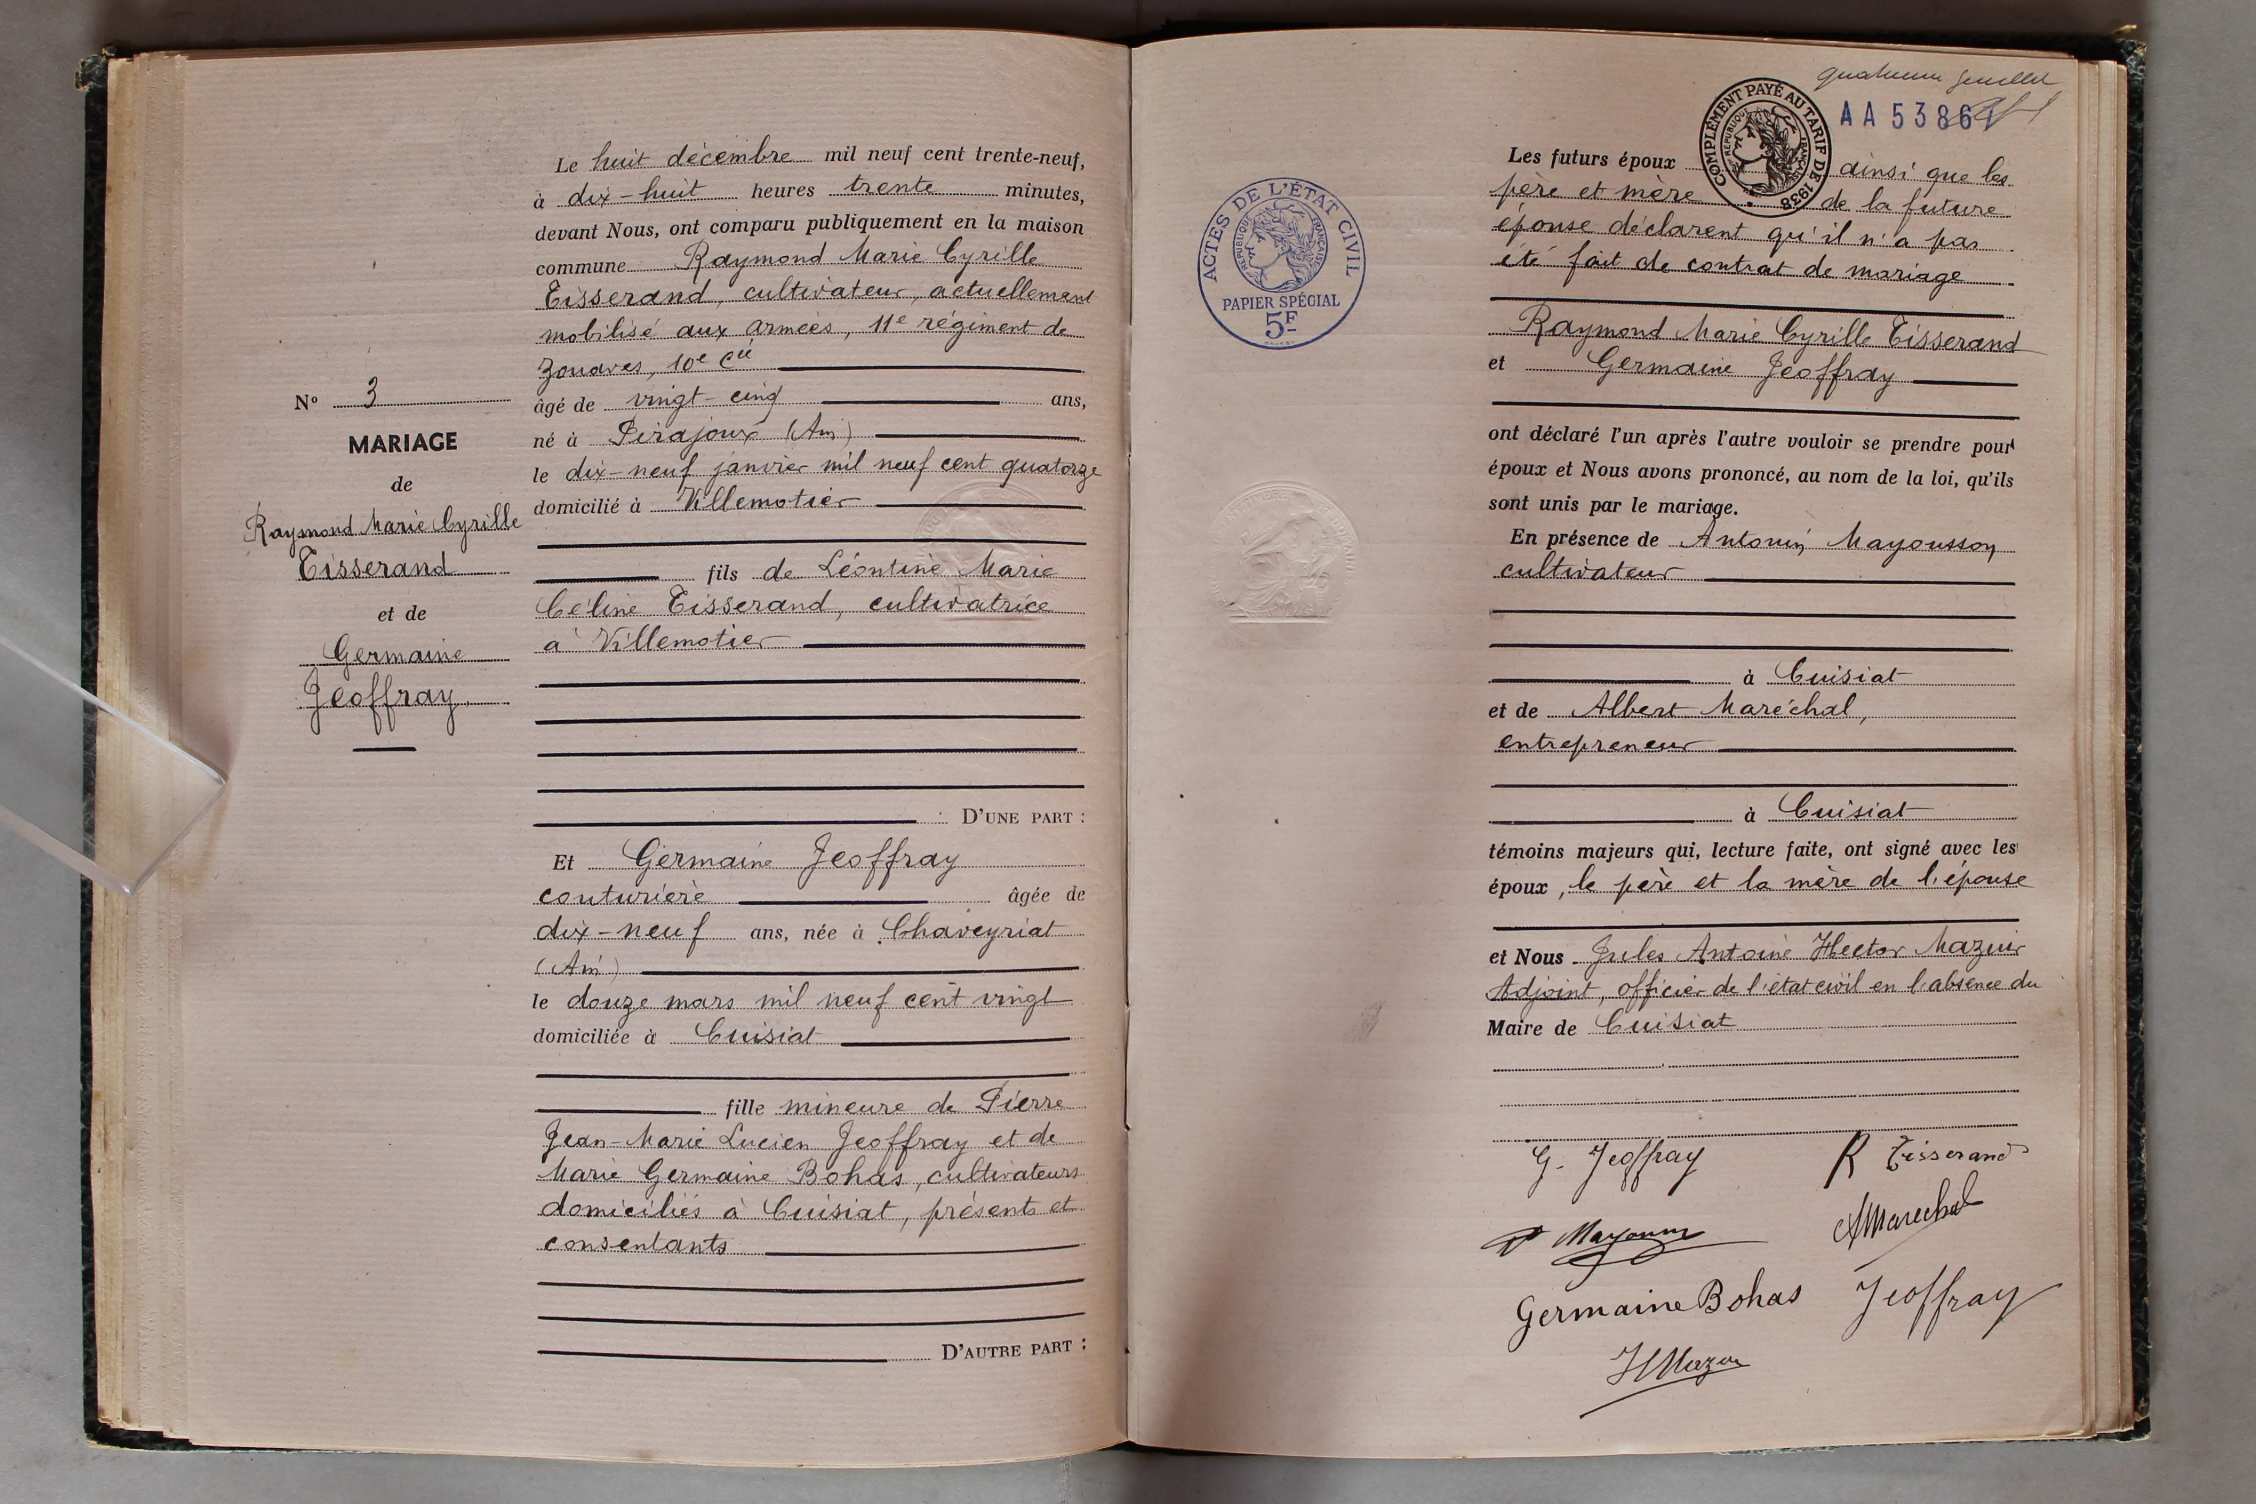 Nº 3
MARIAGE
de
Raymond Marie Cyrille
Tisserand
et de
Germaine
Jeoffray
Le huit décembre mil neuf cent trente-neuf,
à dix-huit heures trente minutes,
devant Nous, ont comparu publiquement en la maison
commune Raymond Marie Cyrille
Tisserand, cultivateur, actuellement
mobilisé aux armées, 11e régiment de
Zouaves, 10e Cie
âgé de vingt-cinq ans,
né à Pirajoux (Ain)
le dix-neuf janvier mil neuf cent quatorze
domicilié à Villemotier
fils de Léontine Marie
Céline Tisserand, cultivatrice
à Villemotier
D'UNE PART :
Et Germaine Jeoffray
couturière âgée de
dix-neuf ans, née à Chaveyriat
(Ain)
le douze mars mil neuf cent vingt
domiciliée à Cuisiat
fille mineure de Pierre
Jean-Marie Lucien Jeoffray et de
Marie Germaine Bohas, cultivateurs
domiciliés à Cuisiat, présents et
consentants
D'AUTRE PART :
ACTES DE L'ÉTAT CIVIL
RÉPUBLIQUE FRANÇAISE
PAPIER SPÉCIAL
5F
COMPLÉMENT PAYÉ AU TARIF DE 1938
RÉPUBLIQUE FRANÇAISE
AA 5386
Les futurs époux ainsi que les
père et mère de la future
épouse déclarent qu'il n'a pas
été fait de contrat de mariage
Raymond Marie Cyrille Tisserand
et Germaine Jeoffray
ont déclaré l'un après l'autre vouloir se prendre pour
époux et Nous avons prononcé, au nom de la loi, qu'ils
sont unis par le mariage.
En présence de Antonin Mayousson
cultivateur
à Cuisiat
et de Albert Maréchal,
entrepreneur
à Cuisiat
témoins majeurs qui, lecture faite, ont signé avec les
époux, le père et la mère de l'épouse
et Nous Jules Antoine Hector Mazuir
Adjoint, officier de l'état civil en l'absence du
Maire de Cuisiat
G. Jeoffray R Tisserand
AMarechal
Germaine Bohas Jeoffray